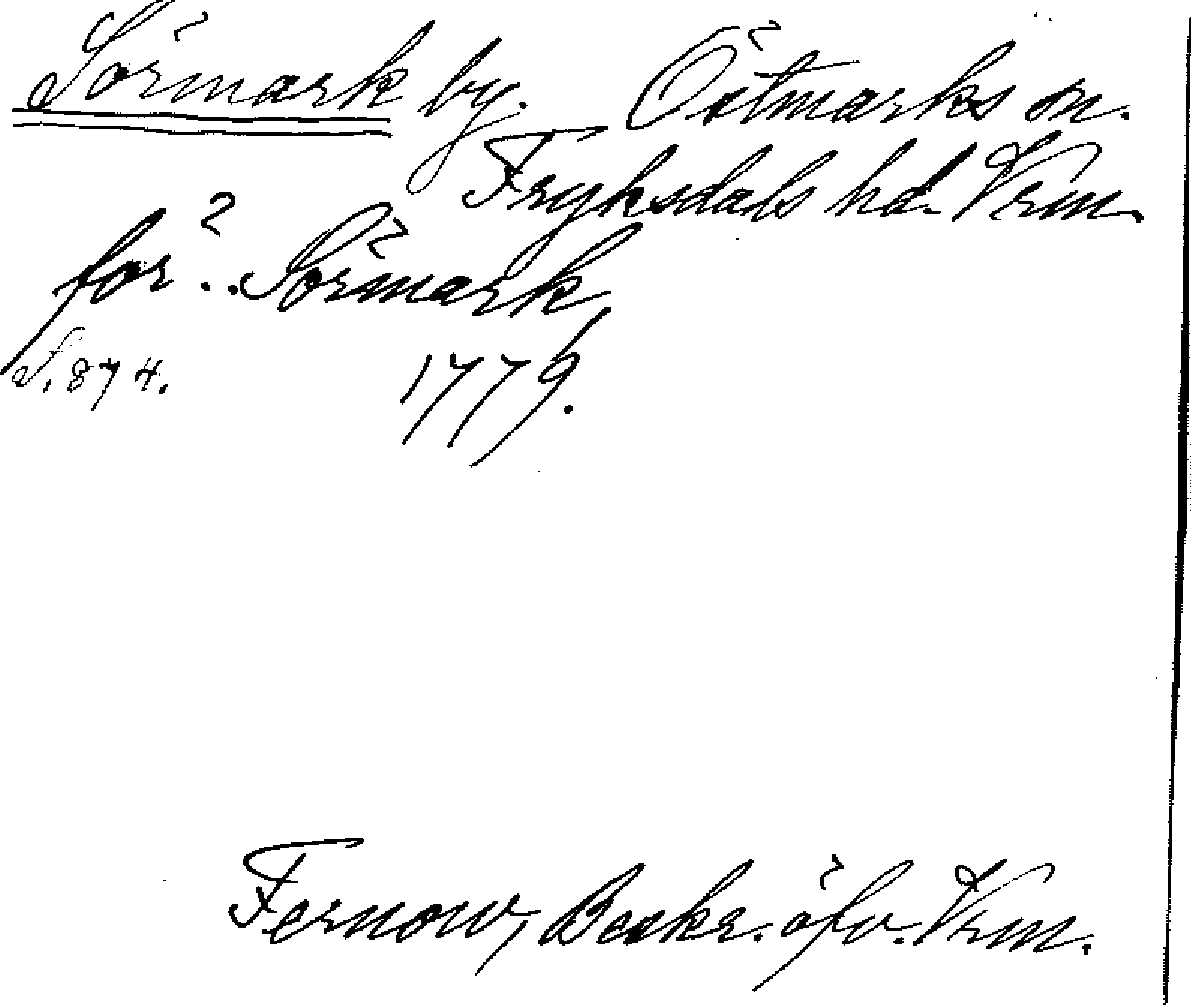 Sörmark by. Östmarks sn.
Fryksdals hd. Vrm.
för: Sörmark
S. 874. 1779.
Fernow, Beskr. öfv. Vrm.